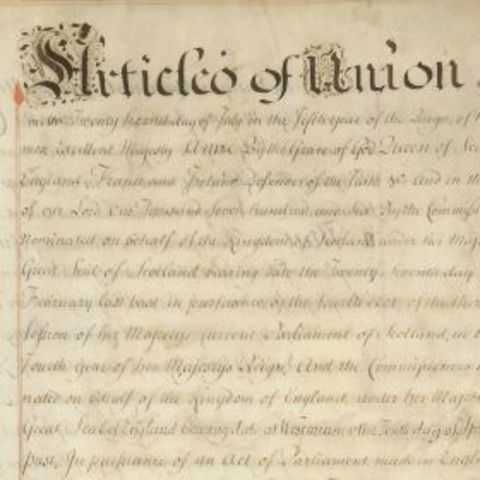 Articles of Union
on the Twenty Second day of July in the Fifth Year of the Reign of
most Excellent Majesty Anne By the Grace of God Queen of Sco
England France and Ireland Defender of the Faith &c And in th
of our Lord One Thousand Seven hundred and Six By the Commiss
Nominated on behalf of the Kingdom of Scotland under her Maj
Great Seal of Scotland bearing date the Twenty Seventh day
February last past in pursuance of the fourth act of the third
Session of her Majestys current Parliament of Scotland, in
Fourth Year of her Majestys Reign, And the Commissioners
nated on behalf of the Kingdom of England under her Majes
Great Seal of England bearing date at Westminster the Tenth day of Ap
past, In pursuance of an Act of Parliament made in Engl